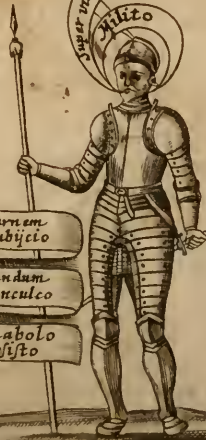 Super
Milito
rnem
bijcio
ndum
nculco
abolo
sisto